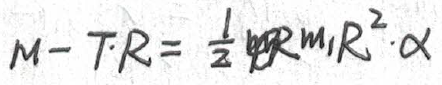 M - T·R = 1/2 m₁R²·α